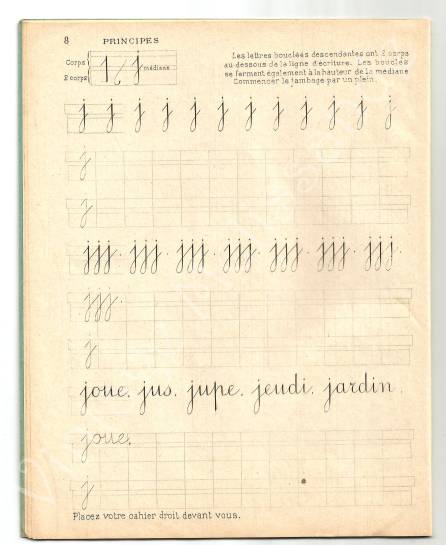 8 PRINCIPES
Corps
2 corps
médiane
Les lettres bouclées descendantes ont 2 corps
au-dessous de la ligne d'écriture. Les boucles
se ferment également à la hauteur de la médiane
Commencer le jambage par un plein.
j j j j j j j j j j j j
j
j
jjj. jjj. jjj. jjj. jjj. jjj. jjj.
jjj.
j
joue. jus. jupe. jeudi. jardin.
joue.
j
Placez votre cahier droit devant vous.